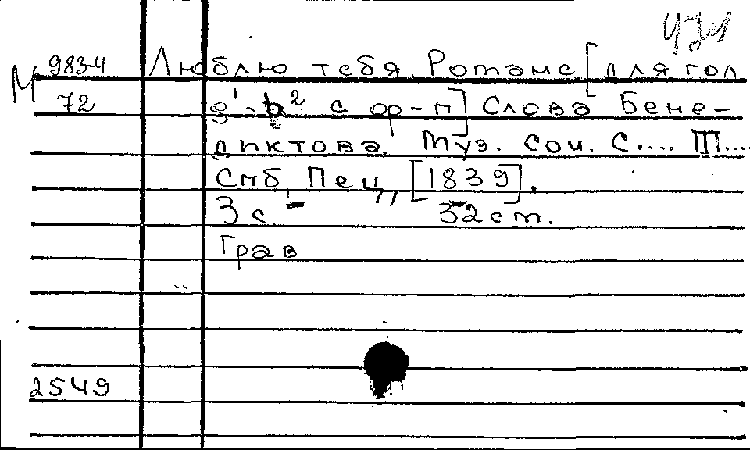 М 9834 Люблю тебя. Романс [для гол
72 g¹-b² с ор-п] Слова Бене-
диктова. Муз. соч. С.... Ш....
Спб, Пец, [1839].
3 с 32 cm.
Грав
2549